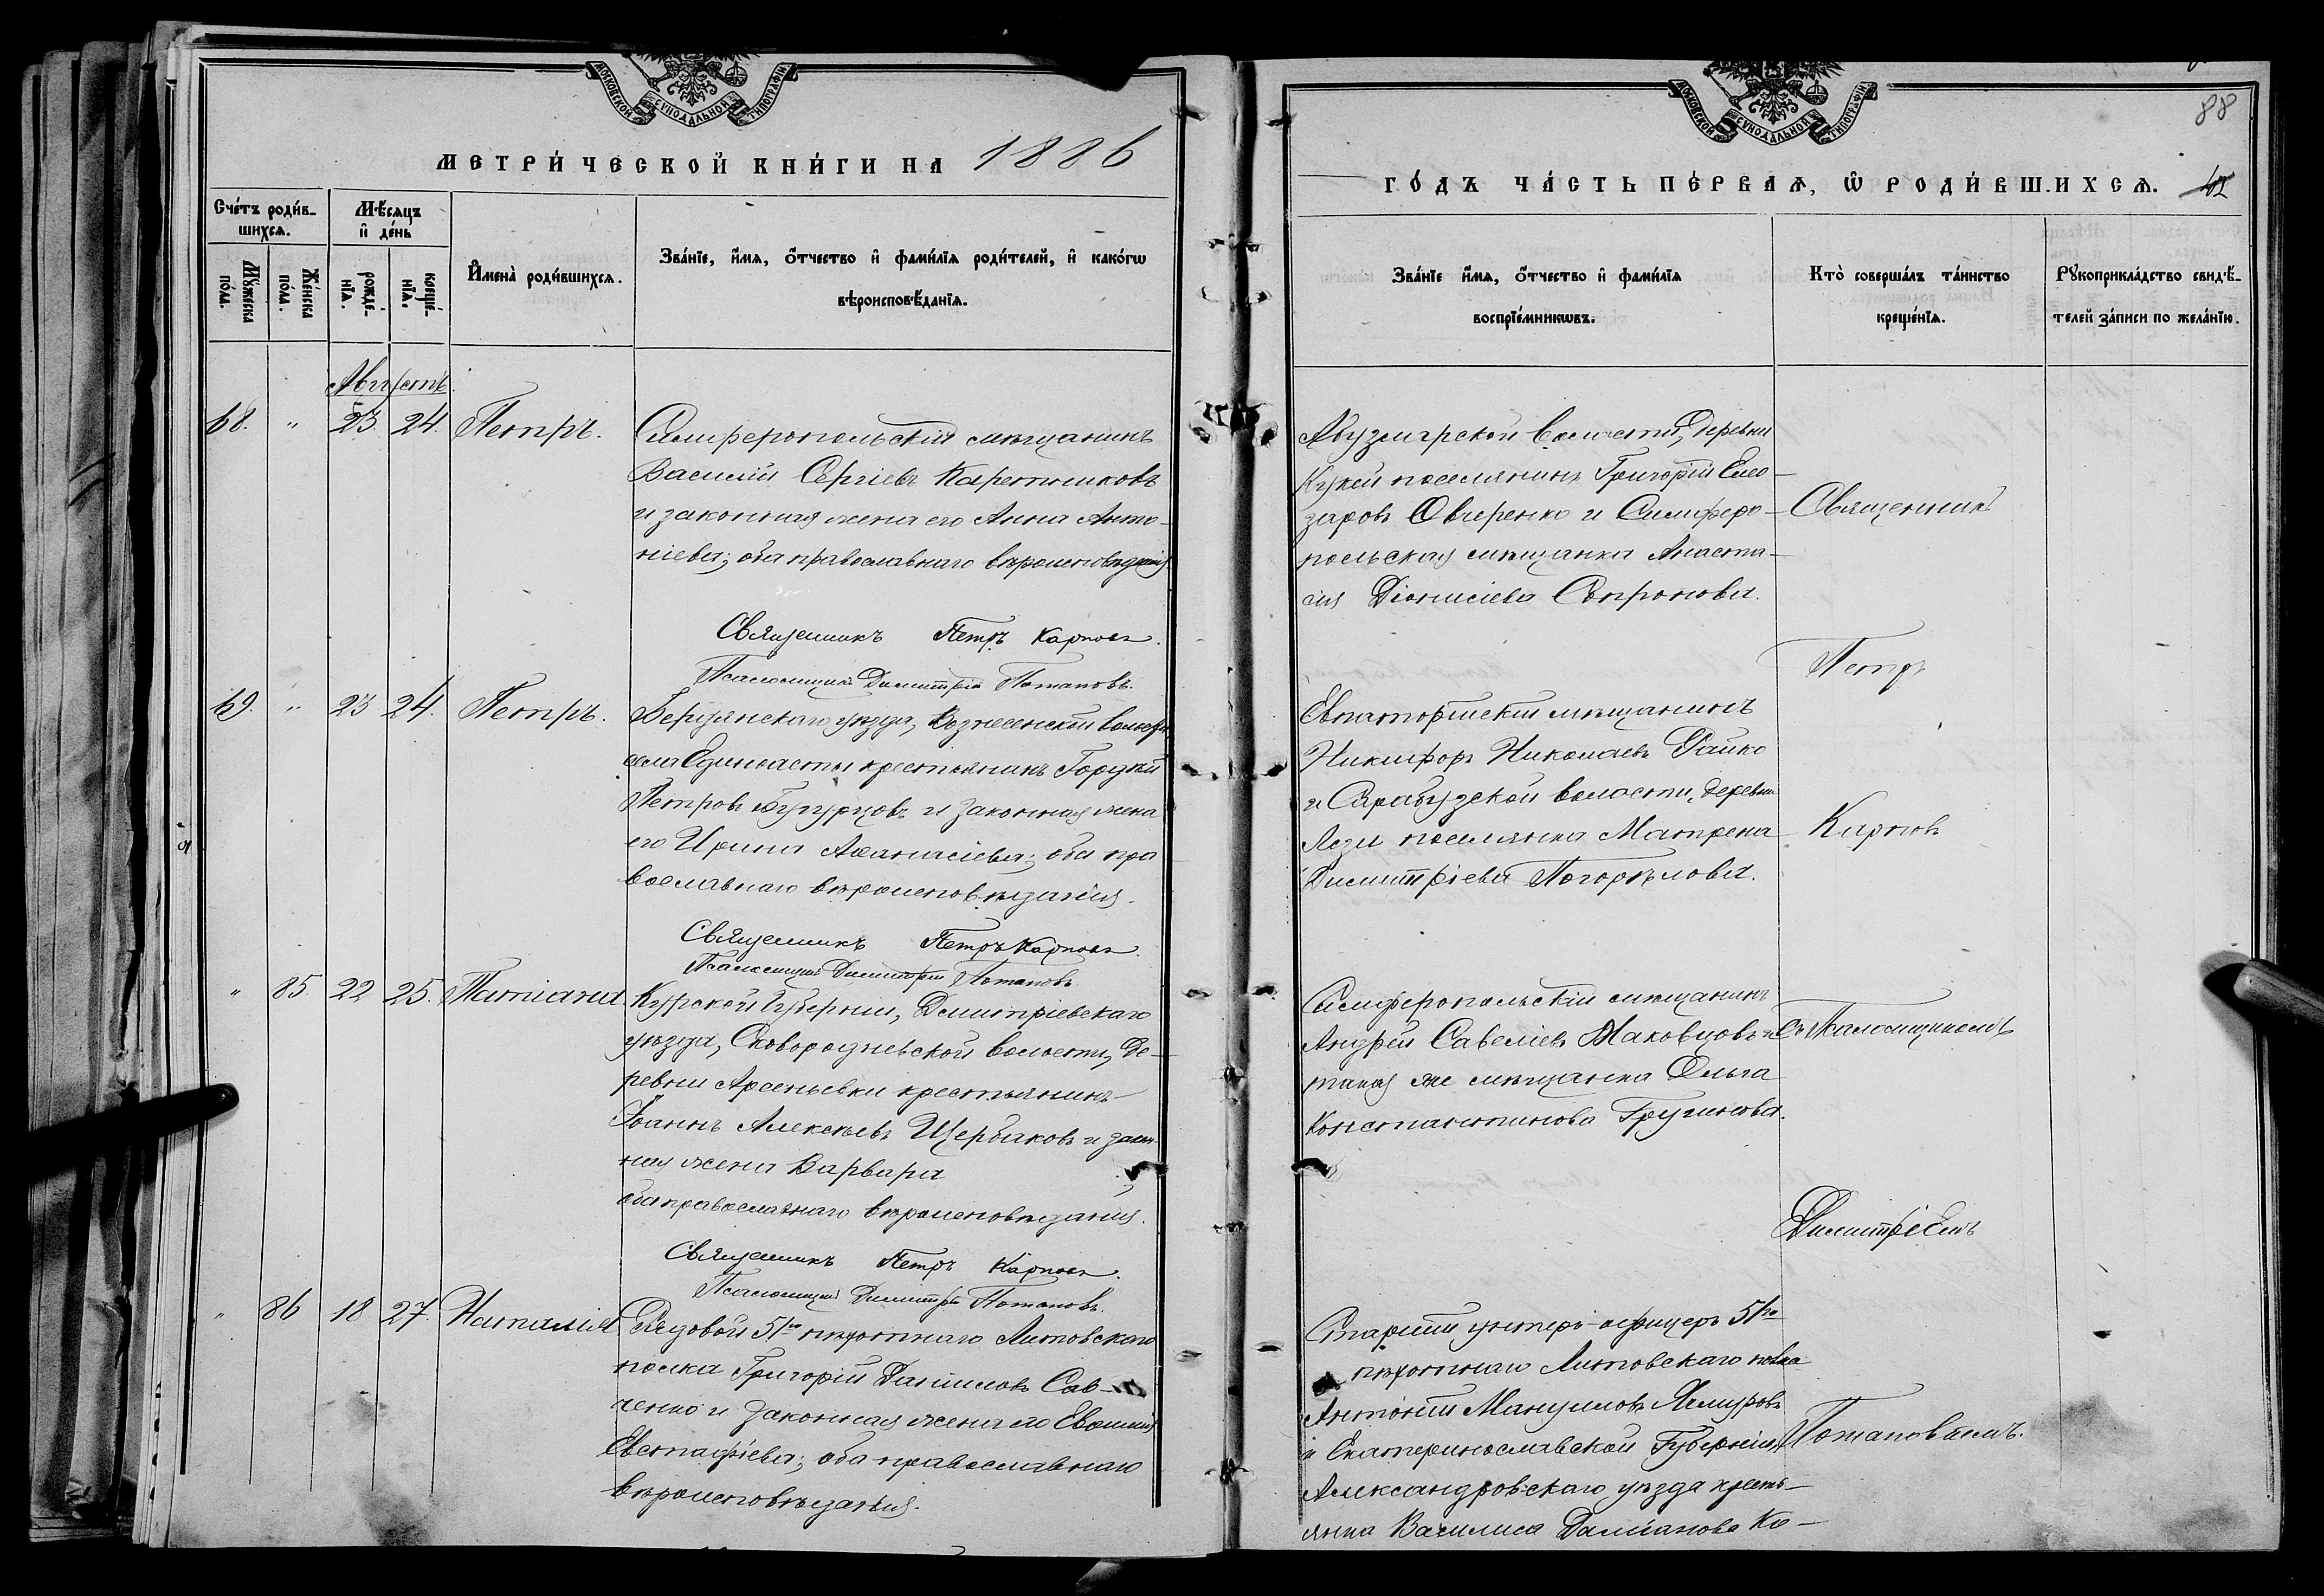 МОСКОВСКОЙ СУНОДАЛЬНОЙ ТИПОГРАФІИ
МЕТРИ́ЧЕСКОЙ КНИ́ГИ НА 1886
Сче́тъ роди́в-
шихсѧ.
Мꙋ́жеска по́ла.
Же́нска по́ла.
Мѣ́сѧцъ и҆ де́нь
рожде́-
нїѧ.
креще́-
нїѧ.
И҆мена̀ роди́вшихсѧ.
Зва́нїе, и҆́мѧ, ѻ҆́тчество и҆ фами́лїѧ роди́телей, и҆ како́гѡ
вѣроисповѣ́данїѧ.
Августъ
68. " 23. 24. Петръ.
Симферопольскій мѣщанинъ
Василій Сергіевъ Каретниковъ
и законная жена его Анна Анто-
ніева; оба православнаго вѣроисповѣданія
Священникъ Петръ Карповъ.
Псаломщикъ Димитрій Потаповъ.
69. " 23 24. Петръ.
Бердянскаго уѣзда, Вознесенской волости,
села крестьянинъ Гордѣй
Петровъ и законная жена
его Ирина Аѳанасіева; оба пра
вославнаго вѣроисповѣданія.
Священникъ Петръ Карповъ.
Псаломщикъ Димитрій Потаповъ
" 85 22 25. Татіана
Курской Губерніи, Дмитріевскаго
уѣзда, Сковородневской волости, де-
ревни Арсеньевки крестьянинъ
Іоаннъ Алексѣевъ Щербаковъ и закон-
ная жена Варвара ;
оба православнаго вѣроисповѣданія.
Священникъ Петръ Карповъ.
Псаломщикъ Димитрій Потаповъ.
" 86 18 27. Наталія
Рядовой 51го пѣхотнаго Литовскаго
полка Григорій Даниловъ Сав-
ченко и законная жена его Евѳимія
Евстафіева; оба православнаго
вѣроисповѣданія.
МОСКОВСКОЙ СУНОДАЛЬНОЙ ТИПОГРАФІИ
88
ГО́ДЪ ЧА́СТЬ ПЕ́РВАѦ, Ѡ҆ РОДИ́ВШИХСѦ. 42
Зва́нїе и҆́мѧ, ѻ҆́тчество и҆ фами́лїѧ
воспрїе́мникѡвъ.
Кто̀ соверша́лъ та́инство
креще́нїѧ.
Рꙋкоприкла́дство свидѣ́-
телей за́писи по жела́нїю.
Абузларской волости, деревни
поселянинъ Григорій Елео-
заровъ Овчеренко и Симферо-
польская мѣщанка Анаста-
сія Діонисіева Сапронова.
Священникъ
Петръ
Евпаторійскій мѣщанинъ
Никифоръ Николаевъ Райко
и Сарабузской волости, деревни
поселянка Матрена
Димитріева Погорѣлова.
Карповъ
Симферопольскій мѣщанинъ
Андрей Савеліевъ Маковцовъ и
такая же мѣщанка Ольга
Константинова Грузинова.
Съ Псаломщикомъ
Димитріемъ
Старшій унтеръ-офицеръ 51го
пѣхотнаго Литовскаго полка
Антоній Мануиловъ
и Екатеринославской Губерніи,
Александровскаго уѣзда кресть-
янка Василиса Даміанова Ко-
Потаповымъ.